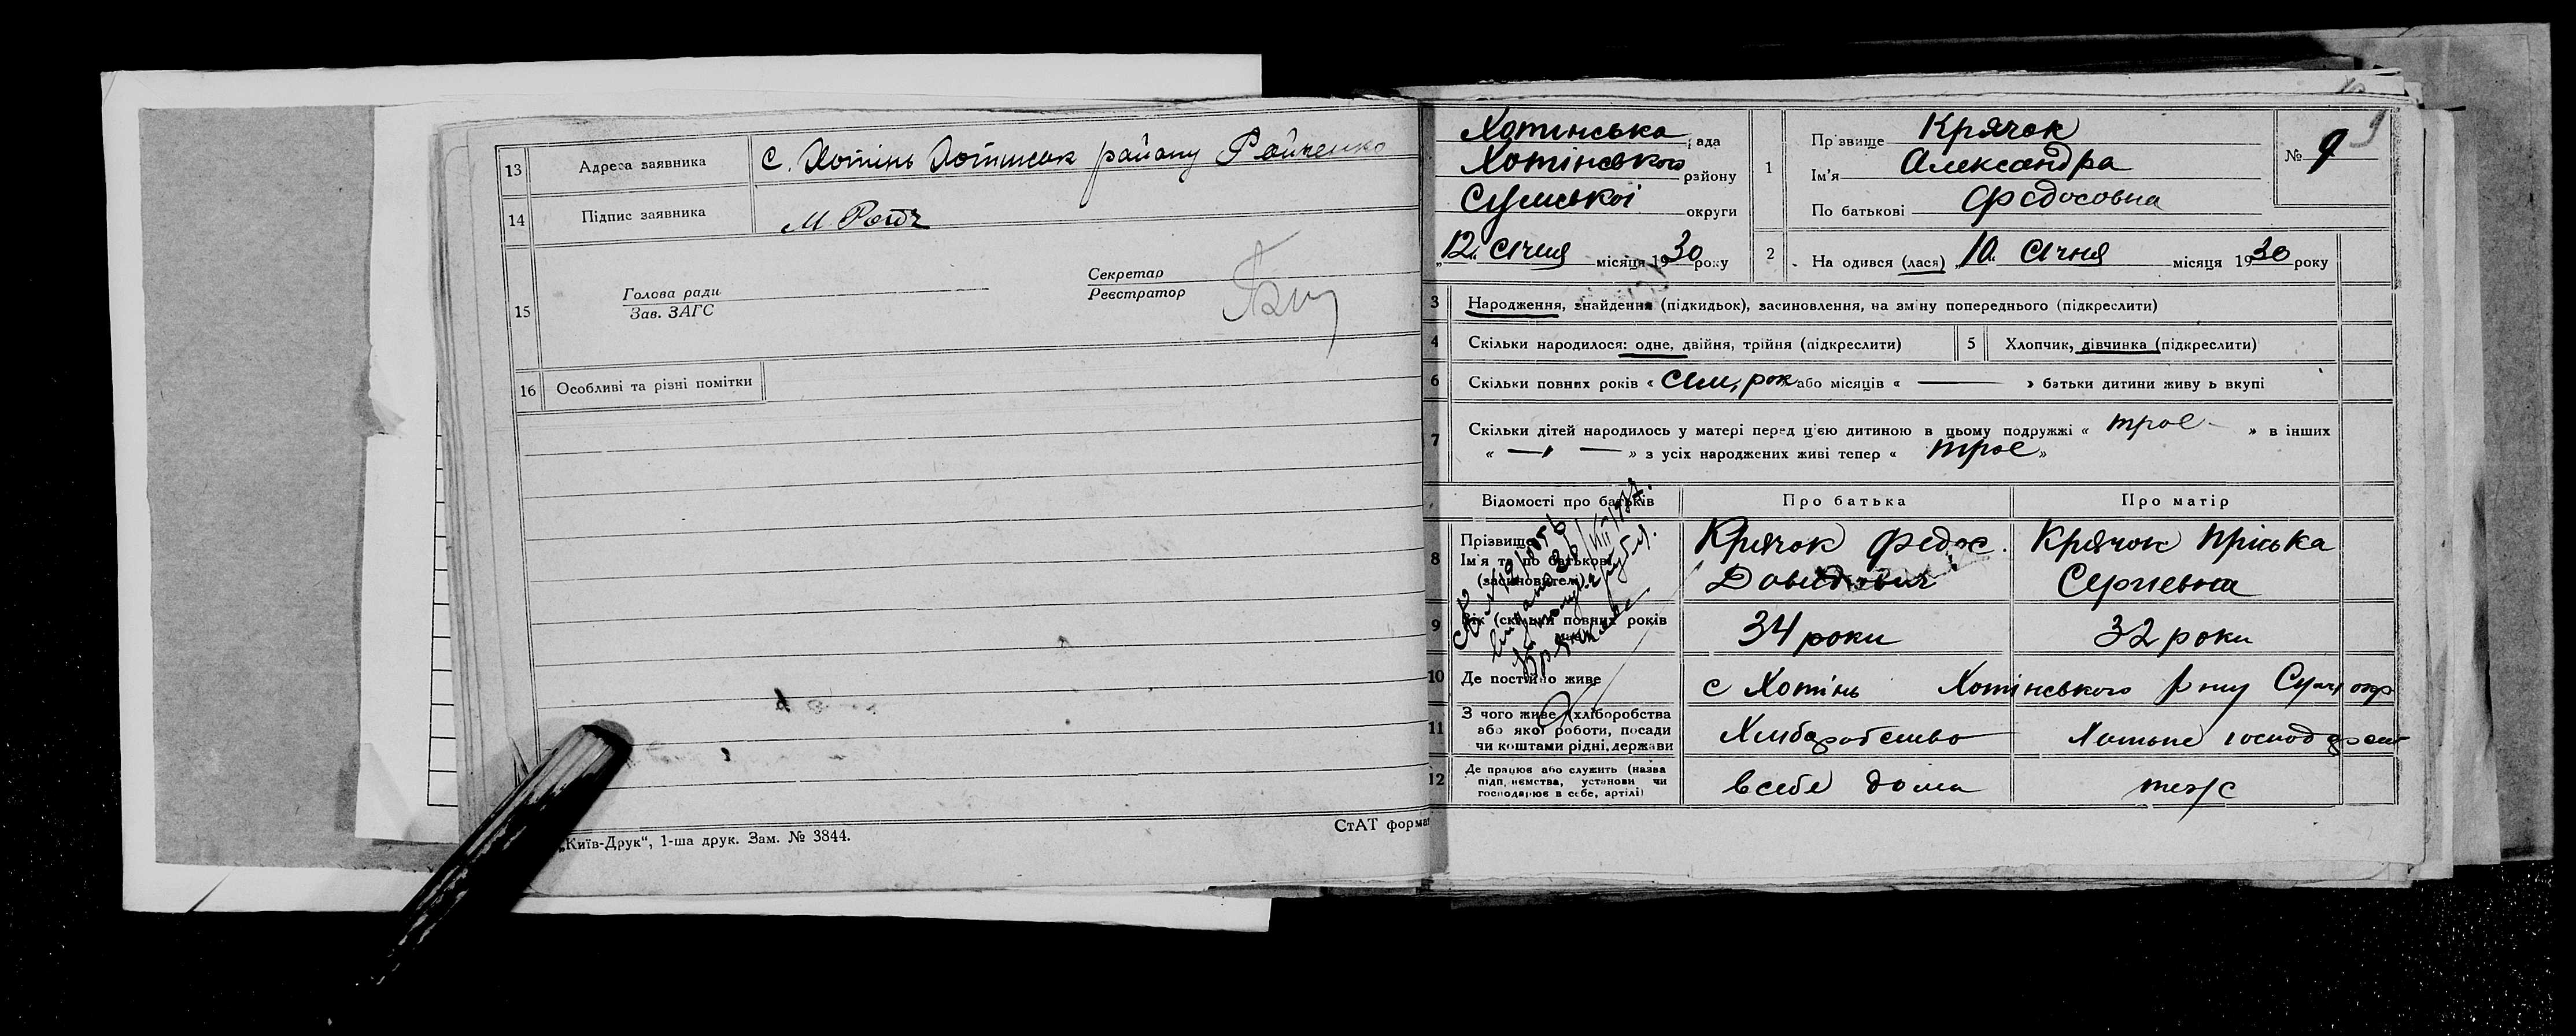 13 Адреса заявника с. Хотінь Хотинськ району Ройченко
14 Підпис заявника М Ройч
15 Голова ради
Зав. ЗАГС
Секретар
Реєстратор
16 Особливі та різні помітки
„Київ-Друк“, 1-ша друк. Зам. № 3844.
СтАТ формат
Хотинська рада
Хотінського району
Сумської округи
„12“ січня місяця 1930 року
1 Прізвище Крячок
Ім'я Александра
По батькові Федосовна
№ 9
9
2 На одився (лася) „10“ Січня місяця 1930 року
3 Народження, знайдення (підкидьок), засиновлення, на зміну попереднього (підкреслити)
4 Скільки народилося: одне, двійня, трійня (підкреслити)
5 Хлопчик, дівчинка (підкреслити)
6 Скільки повних років « сім, рок або місяців « — » батьки дитини живу ь вкупі
7 Скільки дітей народилось у матері перед цією дитиною в цьому подружжі « троє » в інших
« — » з усіх народжених живі тепер « троє »
Відомості про батьків Про батька Про матір
8 Прізвище
Ім'я та по батькові
(засиновителі)
Крячок Федос.
Давидович
Крячок Пріська
Сергиевна
9 Вік (скільки повних років
34 роки 32 роки
10 Де постійно живе с Хотінь Хотінського р ну Сумс окр
11 З чого живе (хліборобства
або якої роботи, посади
чи коштами рідні, держави
Хлиборобство
12 Де працює або служить (назва
підприємства, установи чи
господарює в себе, артілі)
в себе дома теж